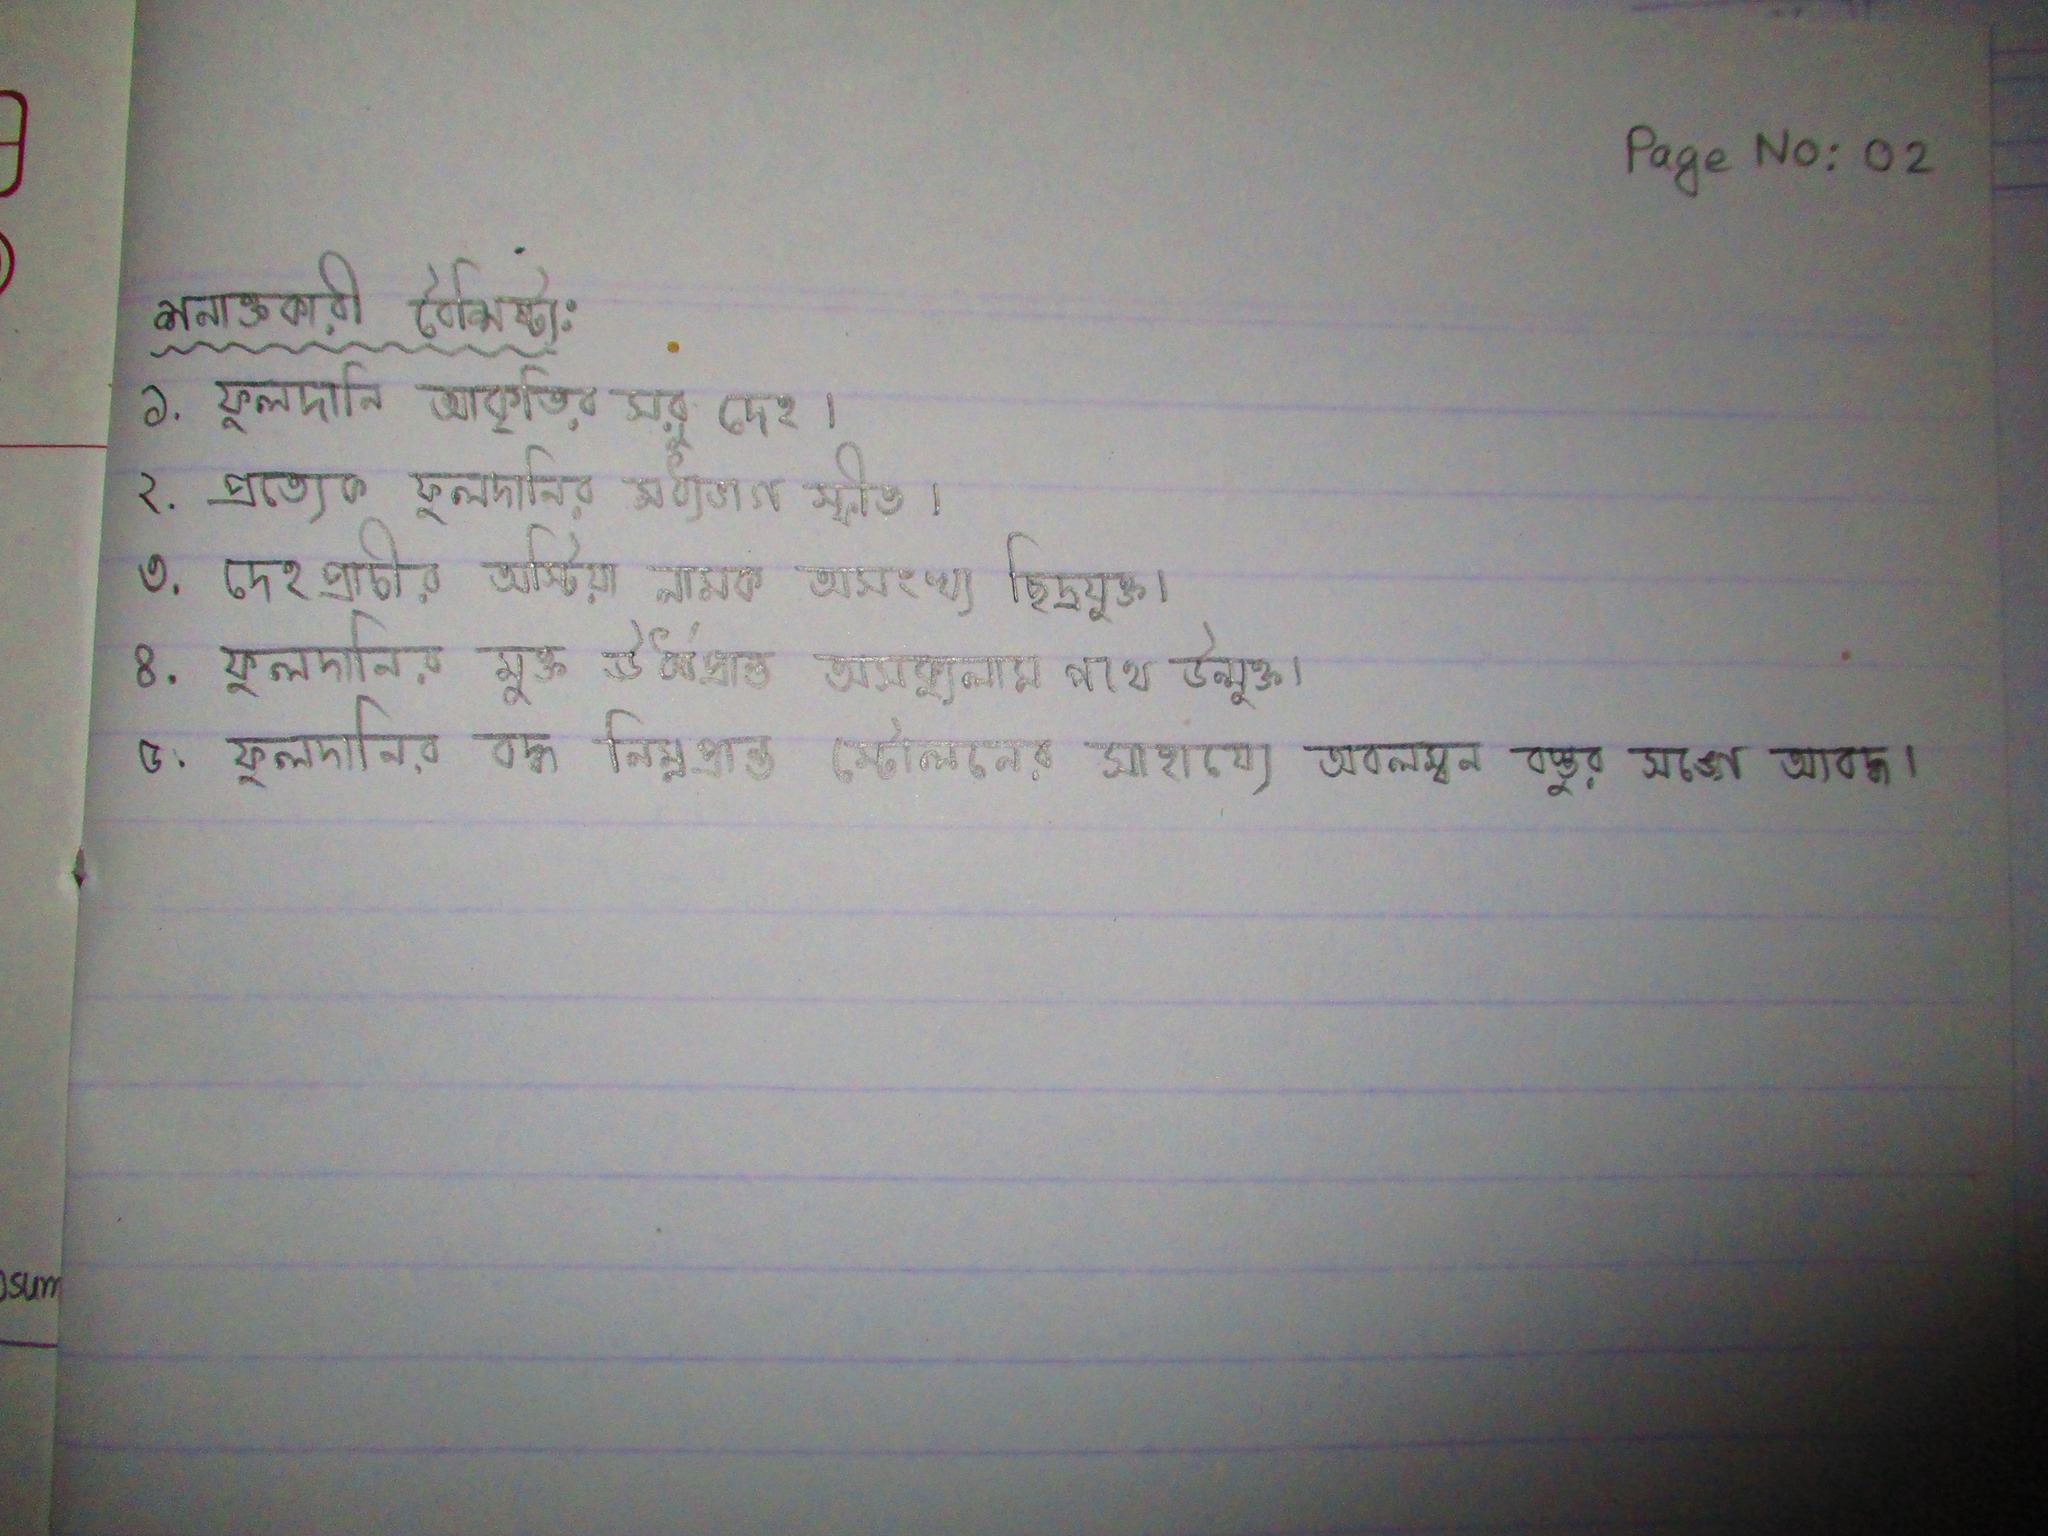 Page No: 02
শনাক্তকারী বৈশিষ্ট্য:
১. ফুলদানি আকৃতির সরু দেহ।
২. প্রত্যেক ফুলদানির মধ্যভাগ স্ফীত।
৩. দেহপ্রাচীর অস্টিয়া নামক অসংখ্য ছিদ্রযুক্ত।
৪. ফুলদানির মুক্ত ঊর্ধ্বপ্রান্ত অসক্যুলাম পথে উন্মুক্ত।
৫. ফুলদানির বদ্ধ নিম্নপ্রান্ত স্টোলনের সাহায্যে অবলম্বন বস্তুর সঙ্গে আবদ্ধ।
osum